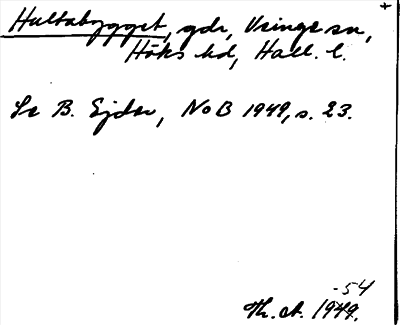 +
Hultabygget, gdr, Veinge sn,
Höks hd, Hall. l.
Se B. Ejder, NoB 1949, s. 23.
-54
Th. at. 1949.